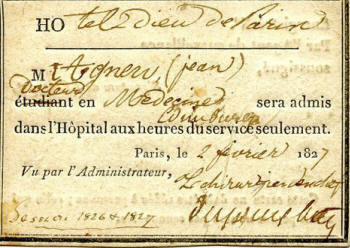 HOtel Dieu de Paris
M Agnew (jean)
Docteur
étudiant en Medecine
sera admis
dans l'Hôpital aux heures du service seulement.
Paris, le 2 fevrier 1827
Vu par l'Administrateur,
Dupuytren
1826 & 1827